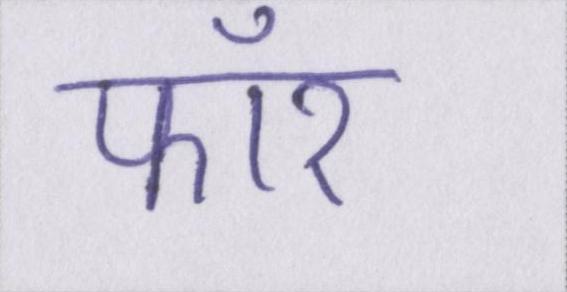 फॉर